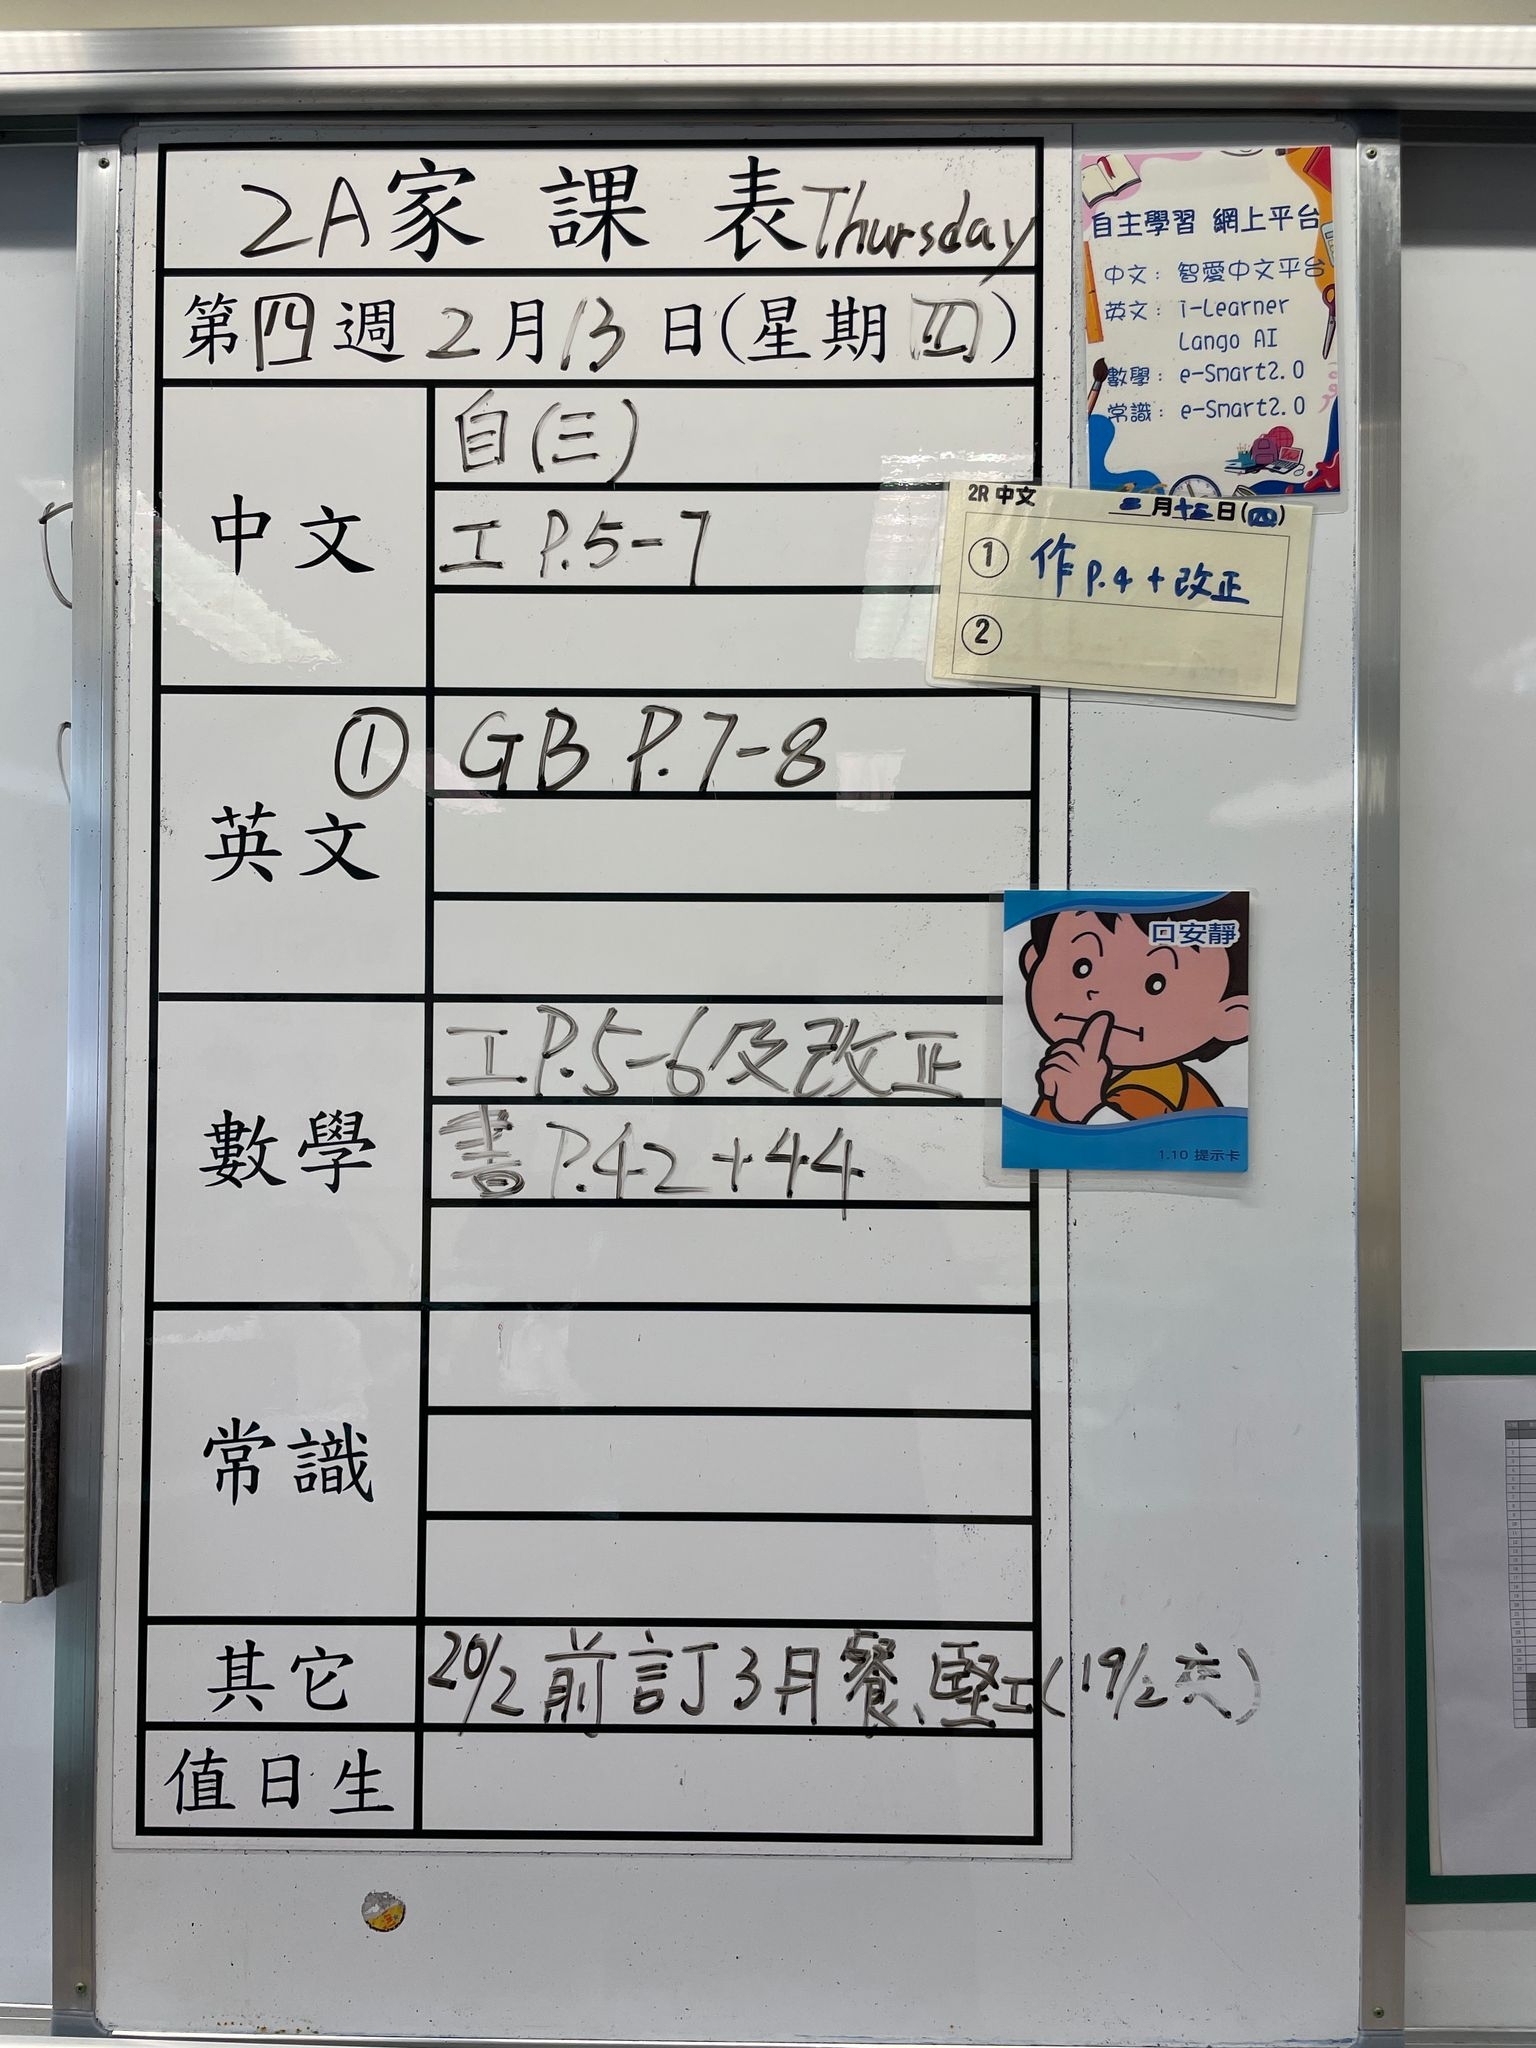 2A家課表Thursday
第四週2月13日(星期四)
中文
自(三)
工 P.5-7
英文
① GB P.7-8
數學
工P.5-6及改正
書P.42+44
常識
其它
20/2前訂3月餐、堅工(19/2交)
值日生
自主學習 網上平台
中文：智愛中文平台
英文：i-Learner
Lango AI
數學：e-Smart2.0
常識：e-Smart2.0
2R 中文 二月十三日(四)
① 作 P.4 + 改正
②
口安靜
1.10 提示卡